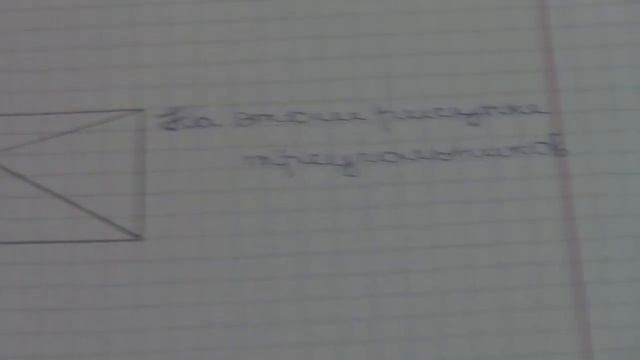 На этом рисунке
треугольников